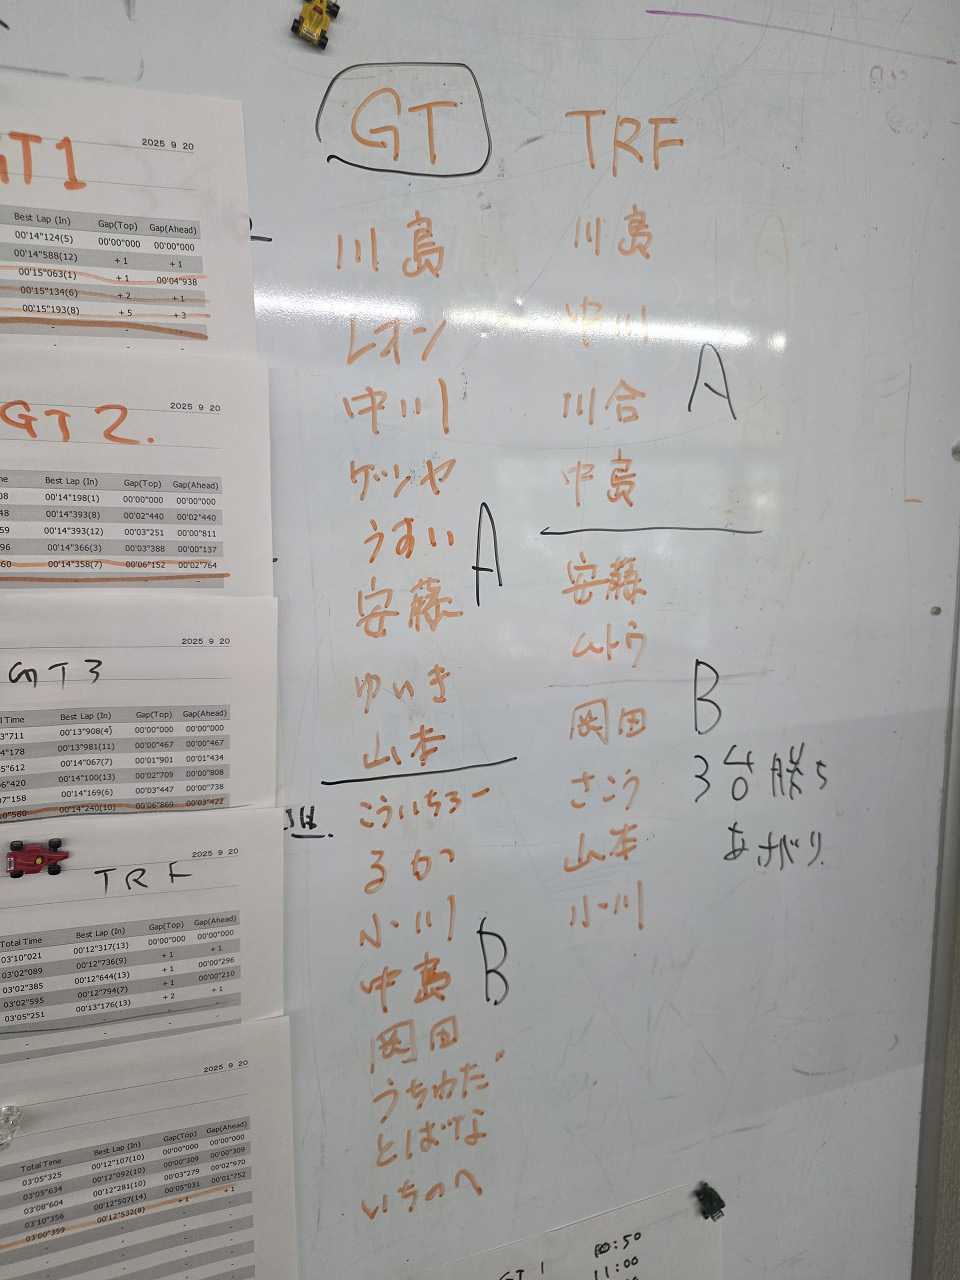 GT1
2025 9 20
Best Lap (In) Gap(Top) Gap(Ahead)
00'14"124(5) 00'00"000 00'00"000
00'14"588(12) +1 +1
00'15"063(1) +1 00'04"938
00'15"134(6) +2 +1
00'15"193(8) +5 +3
- - -
- - -
GT2.
2025 9 20
Best Lap (In) Gap(Top) Gap(Ahead)
00'14"198(1) 00'00"000 00'00"000
00'14"393(8) 00'02"440 00'02"440
00'14"393(12) 00'03"251 00'00"811
00'14"366(3) 00'03"388 00'00"137
00'14"358(7) 00'06"152 00'02"764
GT3
2025 9 20
Best Lap (In) Gap(Top) Gap(Ahead)
00'13"908(4) 00'00"000 00'00"000
00'13"981(11) 00'00"467 00'00"467
00'14"067(7) 00'01"901 00'01"434
00'14"100(13) 00'02"709 00'00"808
00'14"169(6) 00'03"447 00'00"738
00'14"240(10) 00'06"869 00'03"422
TRF
2025 9 20
Total Time Best Lap (In) Gap(Top) Gap(Ahead)
03'10"021 00'12"317(13) 00'00"000 00'00"000
03'02"089 00'12"736(9) +1 +1
03'02"385 00'12"644(13) +1 00'00"296
03'02"595 00'12"794(7) +1 00'00"210
03'05"251 00'13"176(13) +2 +1
2025 9 20
Total Time Best Lap (In) Gap(Top) Gap(Ahead)
03'05"325 00'12"107(10) 00'00"000 00'00"000
03'05"634 00'12"092(10) 00'00"309 00'00"309
03'08"604 00'12"281(10) 00'03"279 00'02"970
03'10"356 00'12"507(14) 00'05"031 00'01"752
03'00"359 00'12"532(8) +1 +1
GT
川島
レオン
中川
ゲンヤ
うすい
安藤
A
ゆいき
山本
こういちろー
るか
小川
中島
B
岡田
うちわだ
とばな
いちのへ
TRF
川島
中川
川合
A
中島
安藤
ムトウ
岡田
B
さこう
山本
小川
3台勝ち
あがり
GT1 10:50
11:00